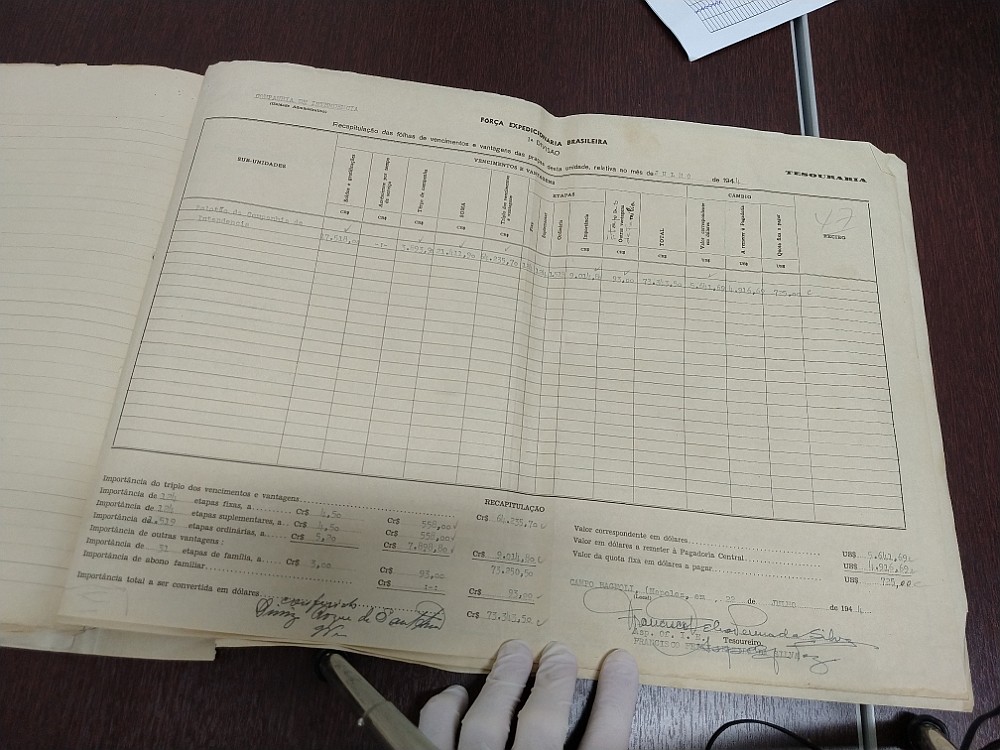 COMPANHIA DE INTENDENCIA
(Unidade Administrativa)
FÔRÇA EXPEDICIONÁRIA BRASILEIRA
1ª DIVISÃO
Recapitulação das fôlhas de vencimentos e vantagens das praças desta unidade, relativa ao mês de JULHO de 1944
TESOURARIA
SUB-UNIDADES
VENCIMENTOS E VANTAGENS
Soldos e gratificações
CR$
Terço de campanha
CR$
SOMA
CR$
Triplo dos vencimentos e vantagens
CR$
ETAPAS
Fixas
Suplementares
Ordinárias
Importância
CR$
Outras vantagens
CR$
TOTAL
CR$
CAMBIO
Valor correspondente em dólares
US$
A remeter à Pagadoria
US$
Quota fixa a pagar
US$
RECIBO
47
Pelotão da Companhia de
Intendencia
17.518, -:- 3.893,9 21.411,90 64.235,70 9.014,80 93,00 73.343,50 5.641,69 4.916,69 725,00
RECAPITULAÇÃO
Importância do triplo dos vencimentos e vantagens Cr$ 64.235,70
Importância de 124 etapas fixas, a Cr$ 4,50 Cr$ 558,00
Importância de 124 etapas suplementares, a Cr$ 4,50 Cr$ 558,00
Importância de 1.519 etapas ordinárias, a Cr$ 5,20 Cr$ 7.898,80 Cr$ 9.014,80
Importância de outras vantagens: 73.250,50
Importância de 31 etapas de família, a Cr$ 3,00 Cr$ 93,00
Importância de abono familiar Cr$ -:- Cr$ 93,00
Importância total a ser convertida em dólares Cr$ 73.343,50
Valor correspondente em dólares US$ 5.641,69
Valor em dólares a remeter à Pagadoria Central US$ 4.916,69
Valor da quota fixa em dólares a pagar US$ 725,00
CAMPO BAGNOLI, (Napoles, em 22 de JULHO de 1944
(Local)
Conferido
Asp. Of. I. E. Tesoureiro